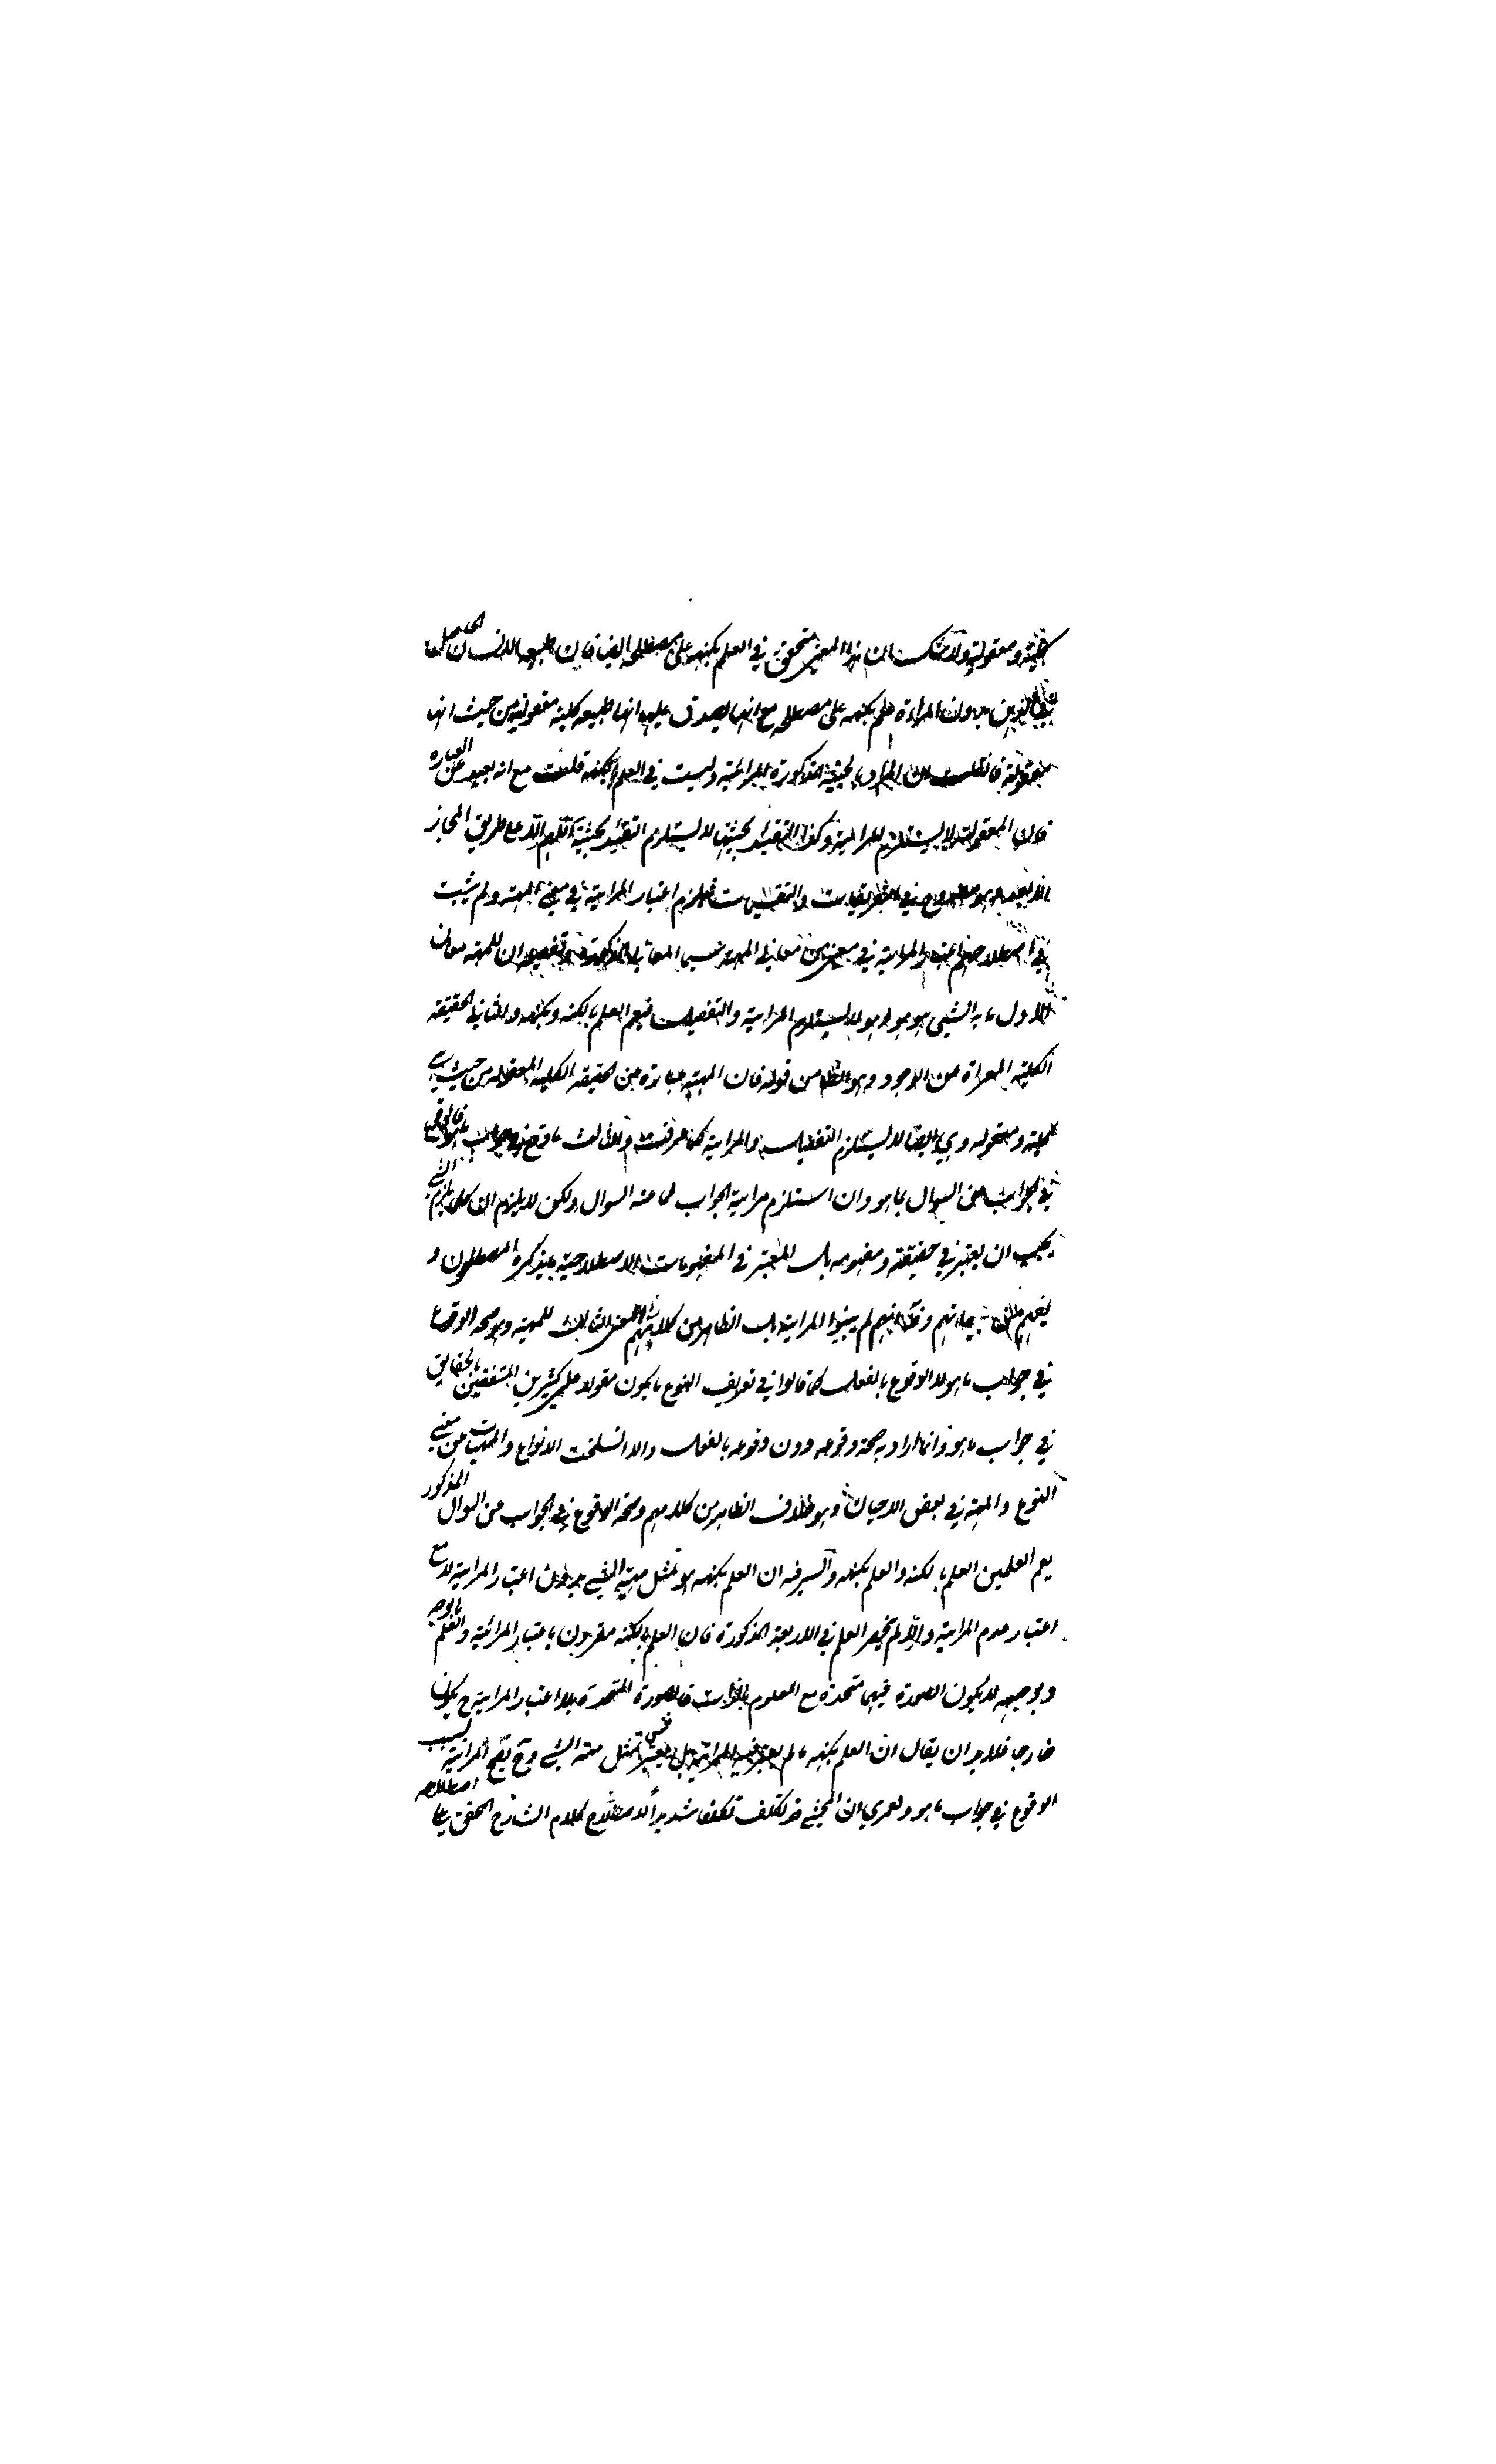 كلية ومعقولية ولا شك ان هذا المعنى متحقق في العلم بكنهه على مصطلحه ايضا فان طبيعة الانسان الحاصل
في الذهن بدون المراءة علم بكنهه على مصطلحه مع انها يصدق عليها انها طبيعة كلية معقولة من حيث انها
معقولة فان قلت ان المراد بالحيثية المذكورة المرائية وليست في العلم بكنهه قلت مع انه بعيد عن العبارة
فان المعقولية لا يستلزم المرائية وكذا التقييد بحيثيتها لا يستلزم التقييد بحيثية اللهم الا على طريق المجاز
البعيد وهو مطروح في التعريفات والتقسيمات فلزم اعتبار المراتية في معنى المهية ولم يثبت
في اصطلاحهم اعتبار المراتية في معنى من معاني المهية سيما المعاني المذكورة وتفصيله ان للمهية معان
الاول ما به الشيء هو هو وهو لا يستلزم المراتية والتفصيل فيعم العلم بالكنه وبكنهه والثاني الحقيقة
الكلية المعراة عن الوجود وهو الظاهر من قوله فان المهية عبارة عن الحقيقة الكلية المعقولة من حيث هي
كلية ومعقوله وهي ايضا لا يستلزم التفصيل والمراتية كما عرفت والثالث ما وقع في جواب ما هو فالوقوع
في الجواب عن السوال بما هو وان استلزم مراتية الجواب لما عنه السوال ولكن لا يلزم ان كل ما يلزم الشيء
يجب ان يعتبر في حقيقته ومفهومه بل المعتبر في المفهومات الاصطلاحية ما يذكره المصطلحون و
يفهم من عباراتهم وظاهر انهم لم يبينوا المراتية بل الظاهر من كلامهم المعنى الثالث للمهية وهو صحة الوقوع
في جواب ما هو لا الوقوع بالفعل كما قالوا في تعريف النوع ما يكون مقولا على كثيرين المتفقين بالحقايق
في جواب ما هو وانما ارادوا به صحة وقوعه دون وقوعه بالفعل والا انسلخت الانواع والمهيات عن معنى
النوع والمهية في بعض الاحيان وهو خلاف الظاهر من كلامهم وصحة الوقوع في الجواب عن السوال المذكور
يعم العلمين العلم بالكنه والعلم بكنهه والسر فيه ان العلم بكنهه هو تمثل مهية الشيء بدون اعتبار المراتية لا مع
اعتبار عدم المراتية والا لم ينحصر العلم في الاربعة المذكورة فان العلم بالكنه مقرون باعتبار المرائية والعلم بالوجه
وبوجهه لا يكون الصورة فيهما متحدة مع المعلوم بالذات فالصورة المتحدة بلا اعتبار المراتية ح يكون
خارجا فلا بد ان يقال ان العلم بكنهه ما لم يعتبر فيه المراتية بل يعتبر نفس تمثل مهية الشيء وح يقع المراتية بسبب
الوقوع في جواب ما هو ولعمري ان المحشي قد تكلف تكلفا شديدا لاصلاح كلام الشارح المحقق على اصطلاحه